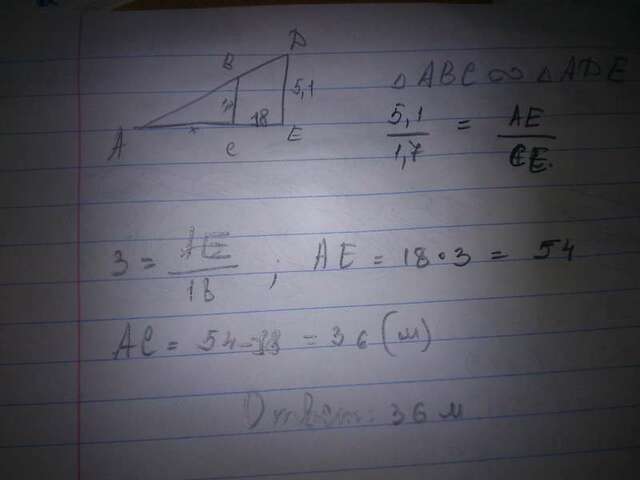 D
B
5,1
18
A
x
C
E
△ABC ∞ △ADE
5,1/1,7 = AE/CE.
3 = AE/18 ; AE = 18·3 = 54
AC = 54- = 36 (м)
Ответ: 36 м